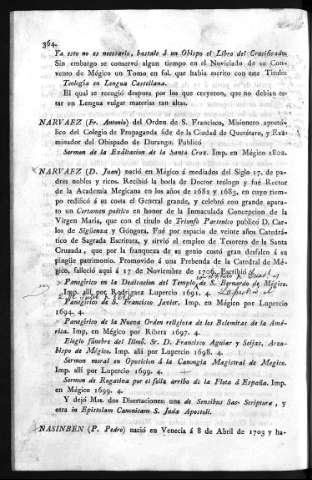 364.
Ya esto no es necesario, bastale á un Obispo el Libro del Crucificado.
Sin embargo se conservó algun tiempo en el Noviciado de su Con-
vento de Mégico un Tomo en fol. que habia escrito con este Titulo
Teología en Lengua Castellana.
El qual se recogió despues por los que creyeron, que no debian es-
tar en Lengua vulgar materias tan altas.
NARVAEZ (Fr. Antonio) del Orden de S. Francisco, Misionero apostó-
lico del Colegio de Propaganda fide de la Ciudad de Querétaro, y Exa-
minador del Obispado de Durango. Publicó
Sermon de la Exáltacion de la Santa Cruz. Imp. en Mégico 1802.
NARVAEZ (D. Juan) nació en Mégico á mediados del Siglo 17. de pa-
dres nobles y ricos. Recibió la borla de Doctor teólogo y fué Rector
de la Academia Megicana en los años de 1682 y 1683, en cuyo tiempo
redificó á su costa el General grande, y celebró con grande apara-
to un Certamen poético en honor de la Inmaculada Concepcion de la
Virgen María, que con el titulo de Triunfo Partenico publicó D. Car-
los de Sigüenza y Góngora. Fué por espacio de veinte años Catedrá-
tico de Sagrada Escritura, y sirvió el empleo de Tesorero de la Santa
Cruzada, que por la franqueza de su genio costó gran desfalco á su
pingüe patrimonio. Promovido á una Prebenda de la Catedral de Mé-
gico, falleció aquí á 17 de Noviembre de 1706. Escribió
Panegírico en la Dedicacion del Templo de S. Bernardo de Mégico.
Imp. allí por Rodriguez Lupercio 1691. 4.
Panegírico de S. Francisco Javier. Imp. en Mégico por Lupercio
1694. 4.
Panegírico de la Nueva Orden religiosa de los Belemitas de la Amé-
rica. Imp. en Mégico por Ribera 1697. 4.
Elogio fúnebre del Illmô. Sr. D. Francisco Aguiar y Seijas, Arzo-
bispo de Mégico. Imp. allí por Lupercio 1698. 4.
Sermon moral en Oposicion á la Canongia Magistral de Megico.
Imp. allí por Lupercio 1699. 4.
Sermon de Rogativa por el feliz arribo de la Flota á España. Imp.
en Mégico 1699. 4.
Y dejó Mss. dos Disertaciones: una de Sensibus Sac. Scripturæ, y
otra in Epistolam Canonicam S. Judæ Apostoli.
NASINBEN (P. Pedro) nació en Venecia á 8 de Abril de 1703 y ha-